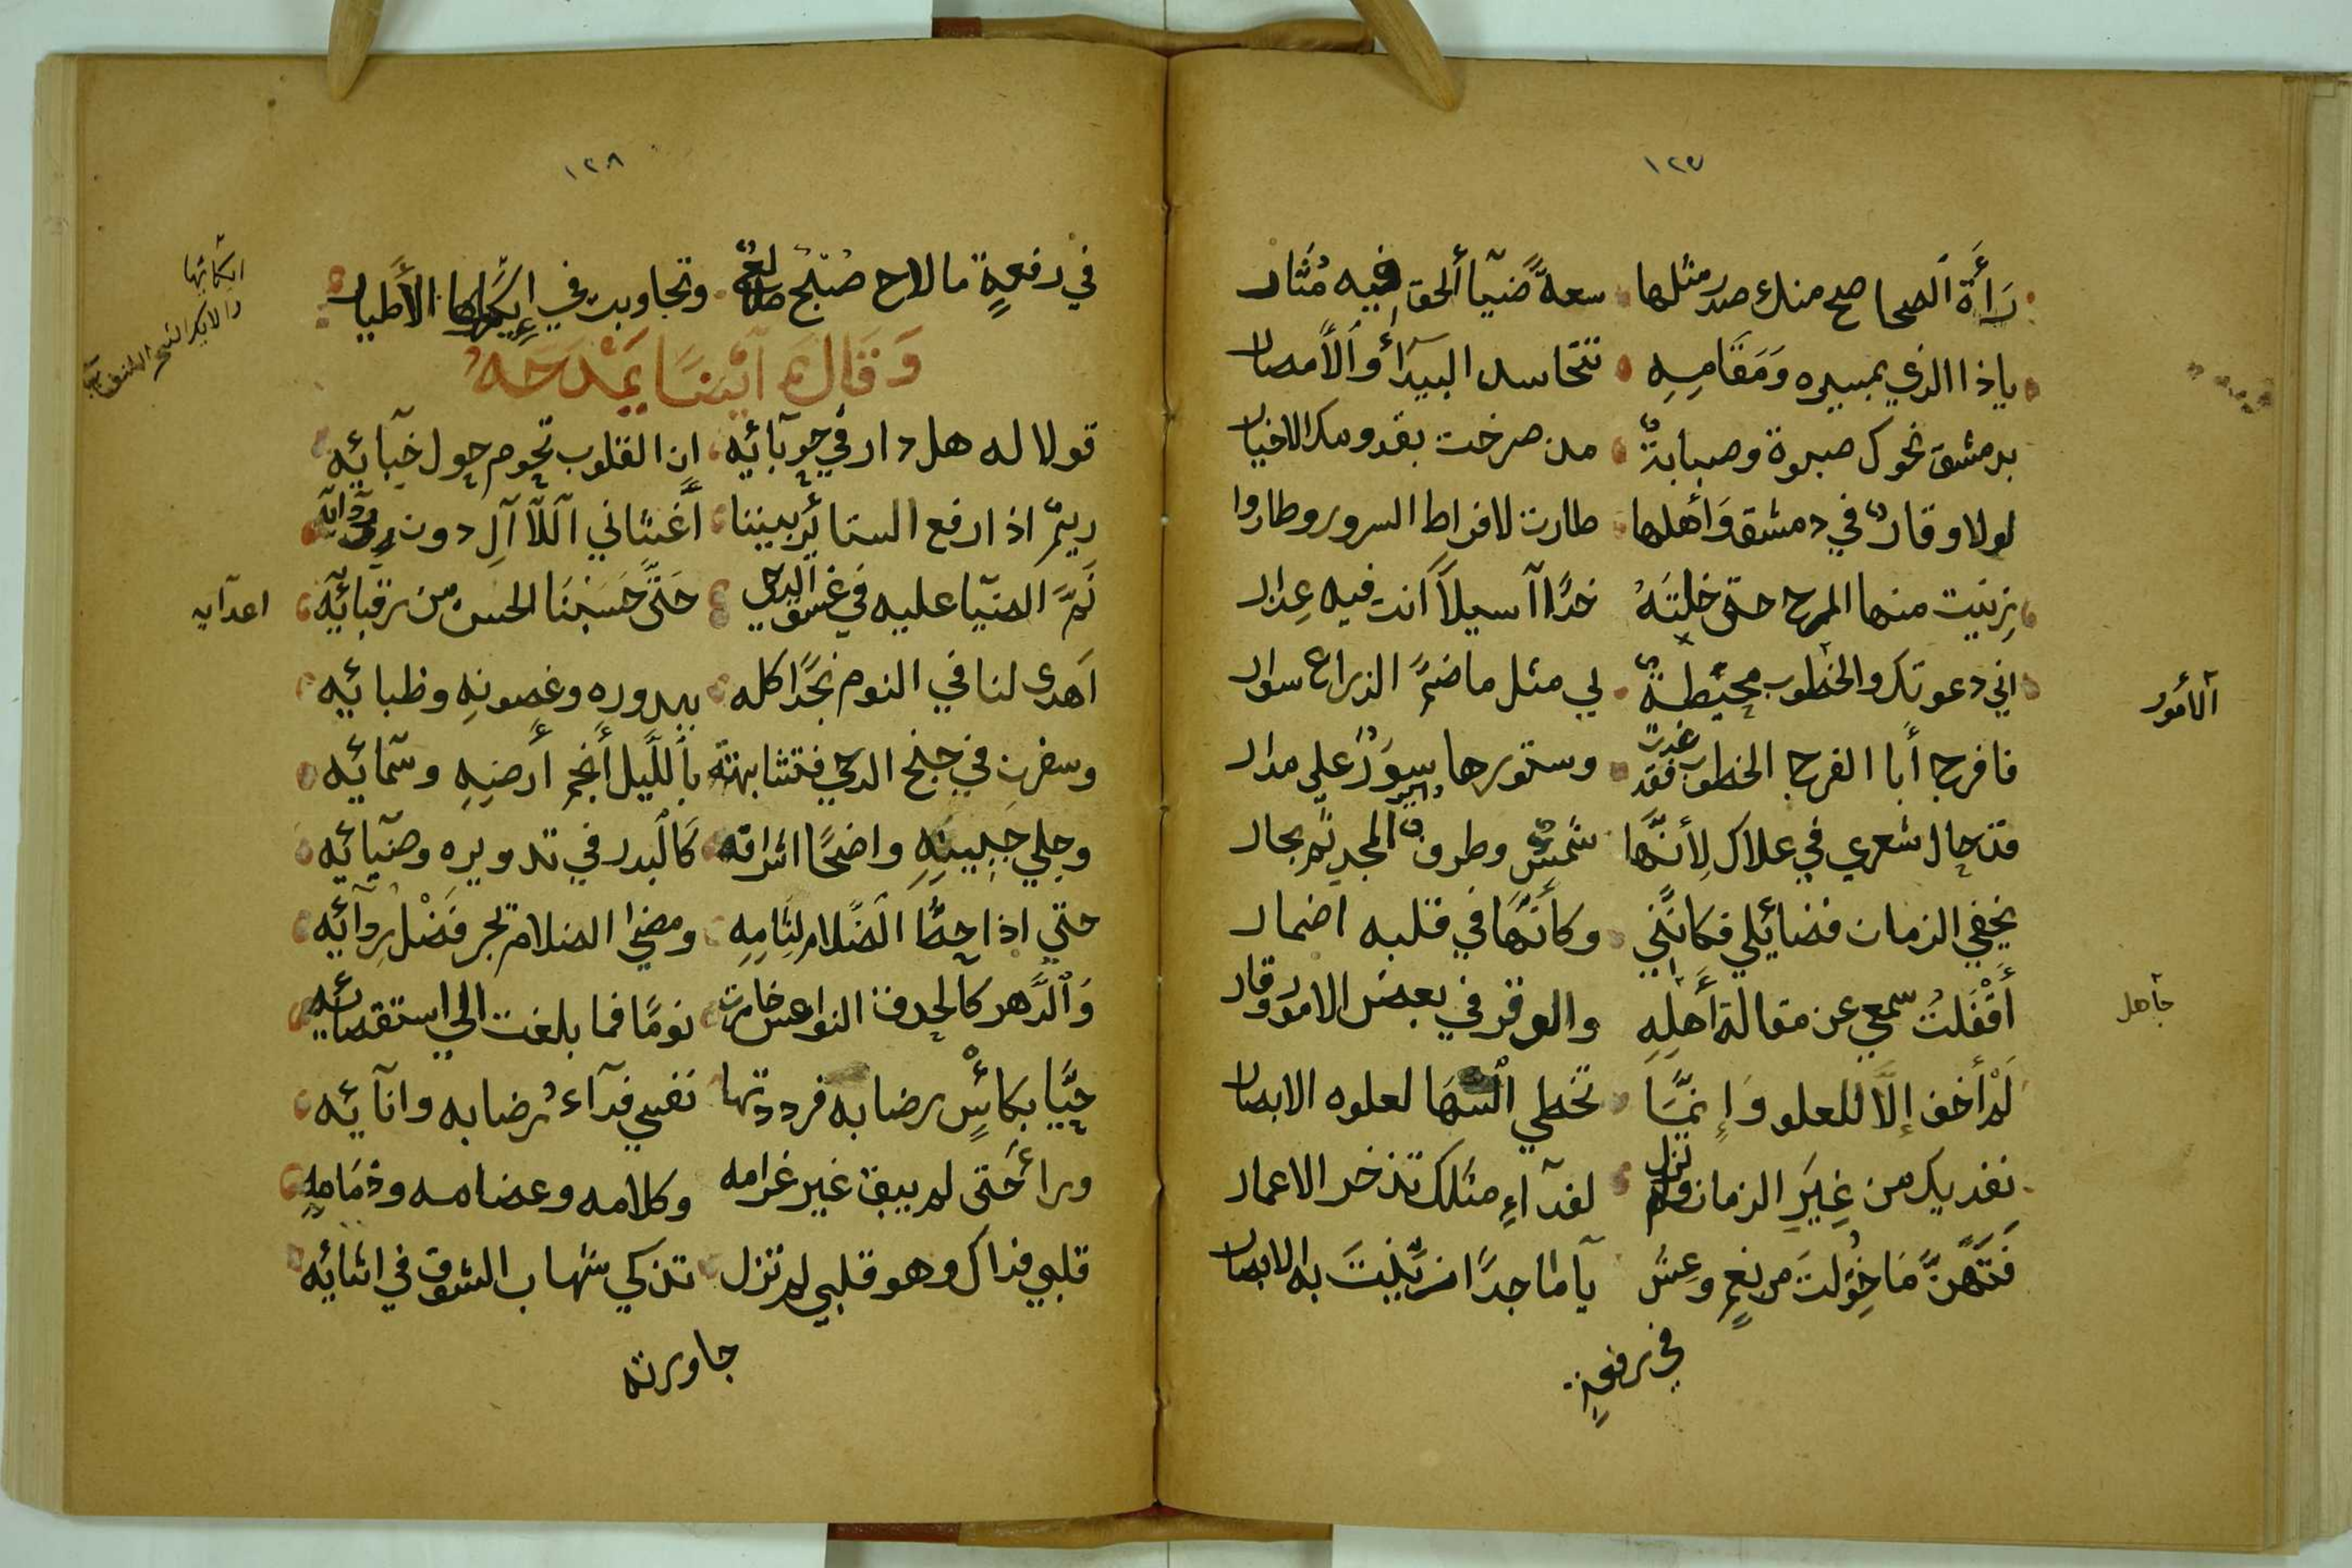 ١٢٧
رَأَة الصحاصح منك صدر مثلها سعةً ضيآ ألحق فيه مُثار
ياذا الذي بمسيره وَمَقَامِهِ تتحاسد البيدَآُ وَالأمصار
بدمشق نحوك صبوة وصبابةٌ مدن صرخت بقدومك الاخيار
لولا وقارك في دمشق وَأهلها طارت لافراط السرور وطاروا
زينت منها المرج حتى خلتَهُ خدًّا آسيلاً أنت فيه عِذار
اني دعوتك والخطوب محيطةٌ لي مثل ما ضمَّ الذراع سوار
آلأمور
فافرج أبا الفرج الخطوب فقد غدت وستورها سورٌ علي مدار
قد جال شعري في علاك لِأنَّها شمسٌ وطرف المجد ثم بجار
يخفي الزمان فضائلي فكانَّني وكأنَّها في قلبه اضمار
أَقْفَلتُ سمعي عن مقالة أَهلِهِ والوقر في بعض الامور وقار
جآهل
لَمْ أخف إلَّا للعلو وَإِنَّمَا تخطي السُّهَا لعلوه الابصار
نفديك من غِيَرِ الزمان ولم تزل لفدآءِ مثلك تذخر الاعمار
فَتَهَنَّ مَا خُوِّلتَ من نعمٍ وعِش يآ ماجدًا زيّنتَ به الابصار
في رفعةٍ
١٢٨
في رفعةٍ ما لاح صُبْحٌ وتجاوبت في الأطيار
ايكاتها
والايك الشجر الملتف
وَقَالَ آيْضًا يَمْدَحَهُ
قولا له هل دار في حوبآئِه ان القلوب تحوم حول خبآئِه
ريمٌ اذا رفع الستائر بيننا أغشاني اَللآآلِ دون ردآيه
نَمَّ الضيآ عليه في غسق الدجي حَتَّى حَسَبْنَا الحسن من رقبآئِه
اعدآيه
اَهدى لنا في النوم نجدًا كله ببدوره وغصونهِ وظبائِه
وسفرت في جنح الدجي فتشابهته بالَّليل أنجم أرضهِ وسمائِه
وجلي جبينهِ واضحًا اشراقه كَالبدر في تدويره وضيآئِه
حتي اذا حطَّ الضلام لِثَامِهِ ومضي الضلام تجر فَضْل ردآئِه
وَالدَّهر كالحدق النواعس خامرت نومًا فما بلغت الي استقصآئِه
حيَّا بكأسٍ رضابه فرددتها نفسي فدآء رُضابه وانآئِه
ورأ حَتى لم يبق غير غرامه وكلامه وعضامه وذمَامِهِ
قلبي فداك وهو قلبي لم تزل تذكي شهاب الشوق في اثنائِه
جاورته